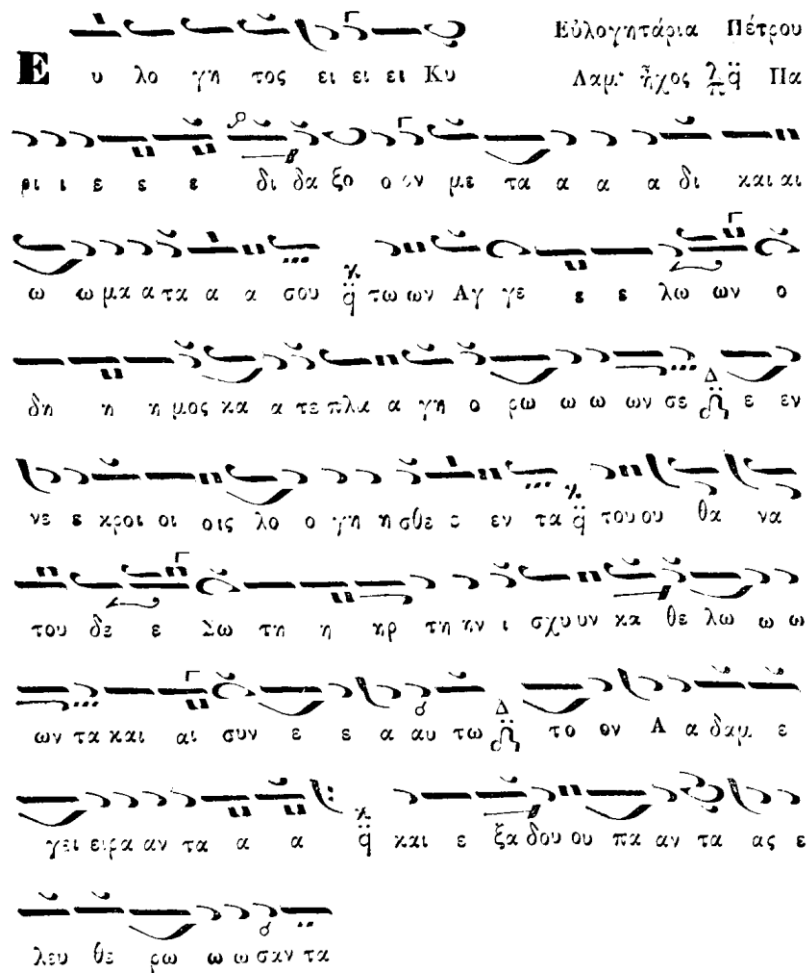 Εὐλογητάρια Πέτρου
Ε υ λο γη τος ει ει ει Κυ
Λαμ· ἦχος Πα
ρι ι ε ε ε δι δα ξο ο ον με τα α α α δι και αι
ω ω μα α τα α α σου τω ων Αγ γε ε ε λω ων ο
δη η η μος κα α τε πλα α γη ο ρω ω ω ων σε Δ ε εν
νε ε κροι οι οις λο ο γη η σθε ε εν τα του ου θα να
του δε ε Σω τη η ηρ τη ην ι σχυ υν κα θε λω ω ω
ων τα και αι συν ε ε α αυ τω Δ το ον Α α δαμ ε
γει ει ρα αν τα α α και ε ξα δου ου πα αν τα ας ε
λευ θε ρω ω ω σαν τα